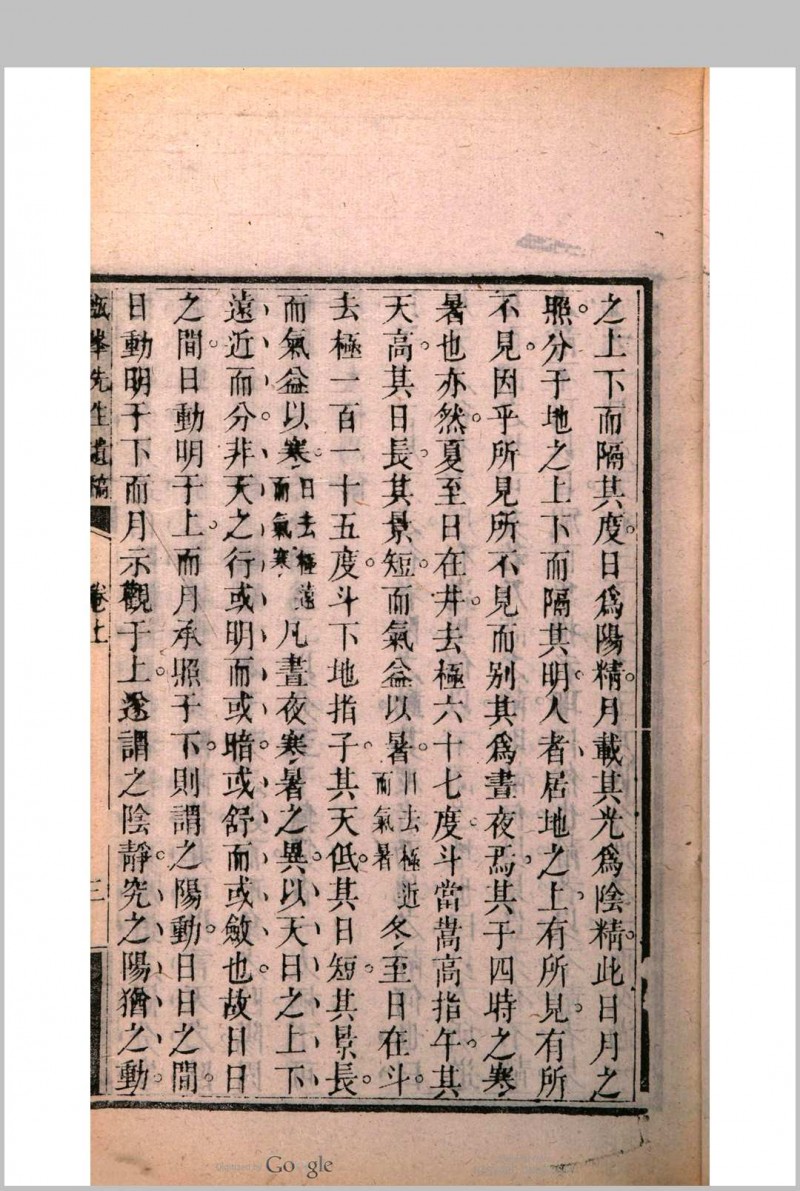 之上下而隔其度。日爲陽精。月載其光爲陰精。此日月之
照。分于地之上下而隔其明。人者居地之上。有所見。有所
不見。因乎所見所不見而別其爲晝夜焉。其于四時之寒
暑也亦然。夏至日在井。去極六十七度。斗當嵩高指午。其
天高。其日長。其景短。而氣益以暑。日去極近而氣暑冬至日在斗。
去極一百一十五度。斗下地指子。其天低。其日短。其景長。
而氣益以寒。日去極遠而氣寒凡晝夜寒暑之異。以天日之上下
遠近而分。非天之行或明而或暗。或舒而或斂也。故日日
之間。日動明于上。而月承照于下。則謂之陽動。日日之間。
日動明于下而月示觀于上。遂謂之陰靜。究之陽猶之動。
峯先生遺稿
卷上
三
Google